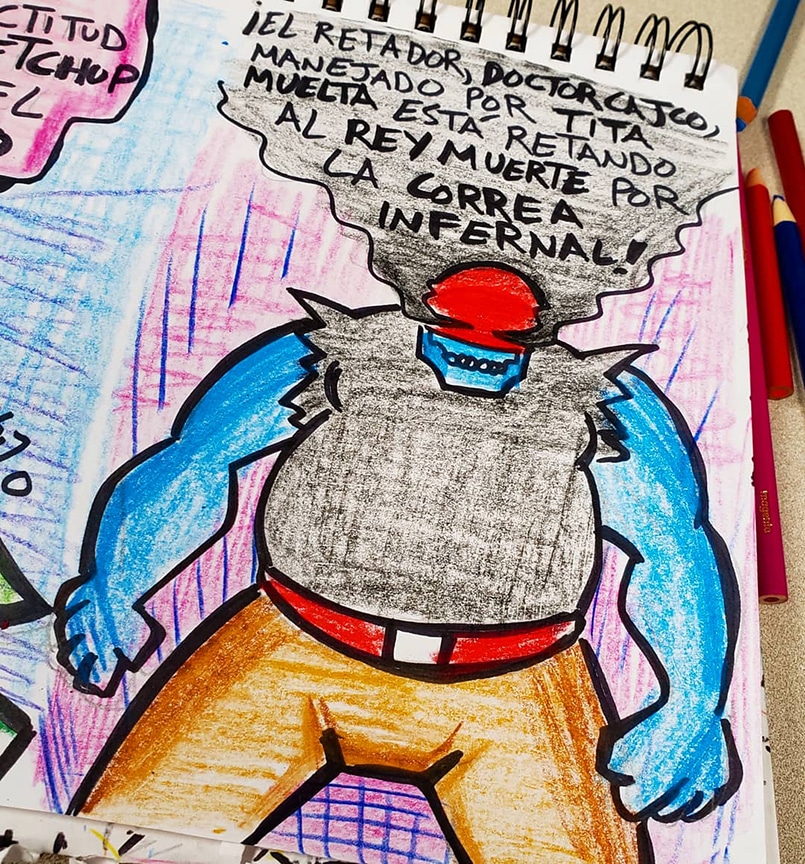 CTITUD
ETCHUP
EL
O
¡EL RETADOR, DOCTOR CAJCO,
MANEJADO POR TITA
MUELTA ESTÁ RETANDO
AL REY MUERTE POR
LA CORREA
INFERNAL!
O